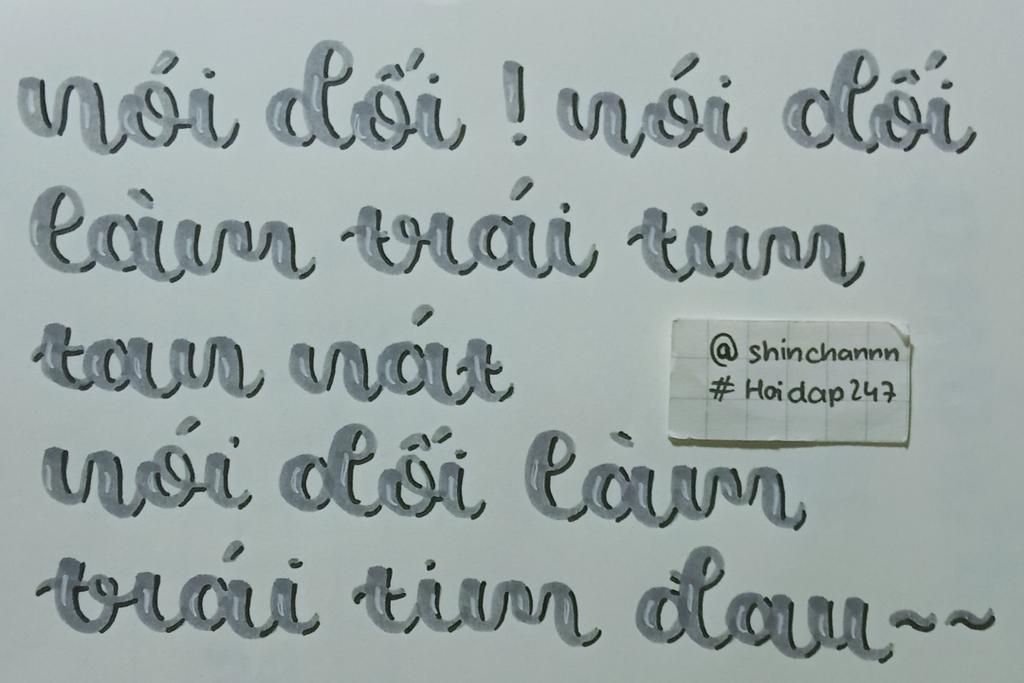 nói dối ! nói dối
làm trái tim
tan nát
@ shinchannn
# Hoidap247
nói dối làm
trái tim đau~~